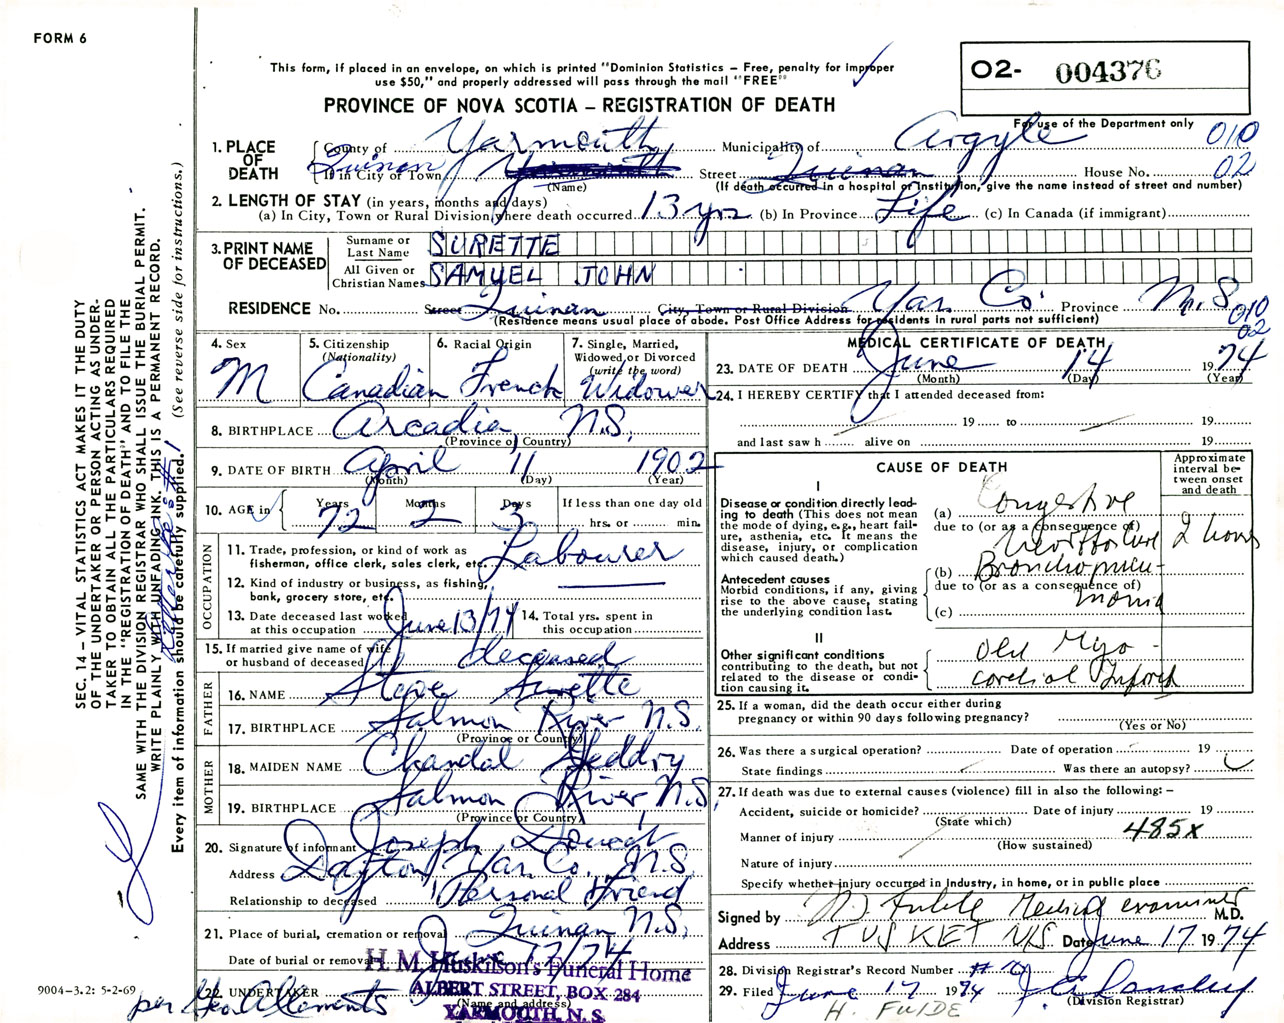 FORM 6
This form, if placed in an envelope, on which is printed "Dominion Statistics – Free, penalty for improper
use $50," and properly addressed will pass through the mail "FREE"
PROVINCE OF NOVA SCOTIA – REGISTRATION OF DEATH
02- 004376
For use of the Department only
010
02
1. PLACE OF DEATH
County of Yarmouth Municipality of Argyle
Quinan If in City or Town Yarmouth Street Quinan House No.
(Name) (If death occurred in a hospital or institution, give the name instead of street and number)
2. LENGTH OF STAY (in years, months and days)
(a) In City, Town or Rural Division where death occurred 13 yrs (b) In Province Life (c) In Canada (if immigrant)
3. PRINT NAME OF DECEASED
Surname or Last Name SURETTE
All Given or Christian Names SAMUEL JOHN
RESIDENCE No. Street Quinan City, Town or Rural Division Yar. Co. Province N.S.
(Residence means usual place of abode. Post Office Address for residents in rural parts not sufficient)
010
02
4. Sex M
5. Citizenship (Nationality) Canadian
6. Racial Origin French
7. Single, Married, Widowed or Divorced (write the word) Widower
8. BIRTHPLACE Arcadia N.S.
(Province or Country)
9. DATE OF BIRTH April 11 1902
(Month) (Day) (Year)
10. AGE in Years 72 Months 2 Days 3 If less than one day old
hrs. or min.
OCCUPATION
11. Trade, profession, or kind of work as
fisherman, office clerk, sales clerk, etc. Labourer
12. Kind of industry or business, as fishing,
bank, grocery store, etc.
13. Date deceased last worked
at this occupation June 13/74
14. Total yrs. spent in
this occupation
15. If married give name of wife
or husband of deceased deceased
FATHER
16. NAME Steve Surette
17. BIRTHPLACE Salmon River N.S.
(Province or Country)
MOTHER
18. MAIDEN NAME Chandal
19. BIRTHPLACE Salmon River N.S.
(Province or Country)
20. Signature of informant Joseph Doucet
Address Dayton Yar. Co., N.S.
Relationship to deceased Personal Friend
21. Place of burial, cremation or removal Quinan N.S.
Date of burial or removal June 17/74
22. UNDERTAKER
(Name and address)
H. M. Huskilson's Funeral Home
ALBERT STREET, BOX 284
YARMOUTH, N. S.
per Geo A Clements
MEDICAL CERTIFICATE OF DEATH
23. DATE OF DEATH June 14 1974
(Month) (Day) (Year)
24. I HEREBY CERTIFY that I attended deceased from:
19 to 19
and last saw h alive on 19
CAUSE OF DEATH
Approximate interval between onset and death
I
Disease or condition directly leading to death (This does not mean the mode of dying, e.g., heart failure, asthenia, etc. It means the disease, injury, or complication which caused death.)
(a) Congestive
due to (or as a consequence of)
2 hours
Antecedent causes
Morbid conditions, if any, giving rise to the above cause, stating the underlying condition last.
(b) Bronchopneu-
due to (or as a consequence of)
monia
(c)
II
Other significant conditions
contributing to the death, but not related to the disease or condition causing it.
Old Myo-
cardial Infarct
25. If a woman, did the death occur either during
pregnancy or within 90 days following pregnancy?
(Yes or No)
26. Was there a surgical operation? Date of operation 19
State findings Was there an autopsy?
27. If death was due to external causes (violence) fill in also the following: –
Accident, suicide or homicide? Date of injury 19
(State which)
Manner of injury 485x
(How sustained)
Nature of injury
Specify whether injury occurred in industry, in home, or in public place
Signed by Medical examiner M.D.
Address TUSKET N/S Date June 17 1974
28. Division Registrar's Record Number
29. Filed June 17 1974
(Division Registrar)
H. FULDE
SEC. 14 – VITAL STATISTICS ACT MAKES IT THE DUTY
OF THE UNDERTAKER OR PERSON ACTING AS UNDER-
TAKER TO OBTAIN ALL THE PARTICULARS REQUIRED
IN THE "REGISTRATION OF DEATH" AND TO FILE THE
SAME WITH THE DIVISION REGISTRAR WHO SHALL ISSUE THE BURIAL PERMIT.
WRITE PLAINLY WITH UNFADING INK. THIS IS A PERMANENT RECORD.
Every item of information should be carefully supplied. (See reverse side for instructions.)
9004-3.2: 5-2-69